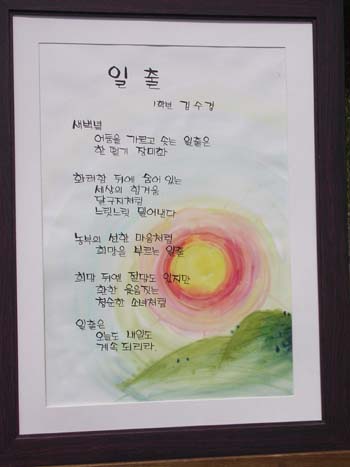 일 출
1학년 김수경
새벽녘
어둠을 가르고 솟는 일출은
한 떨기 장미화
화려함 뒤에 숨어 있는
세상의 힘겨움
달구지처럼
느릿느릿 밀어낸다
농부의 선한 마음처럼
희망을 부르는 일출
희망 뒤엔 절망도 있지만
환한 웃음짓는
청순한 소녀처럼
일출은
오늘도 내일도
계속 되리라.